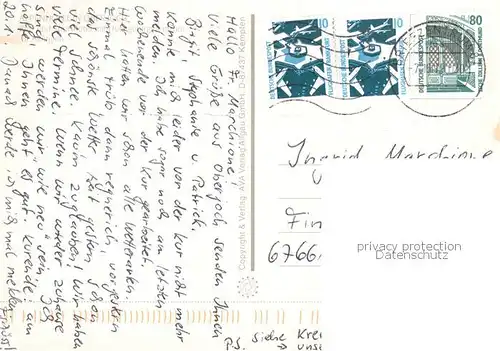 Hallo Fr. Marchione,
Viele Grüße aus Oberjoch senden Ihnen
Birgit, Stephanie u. Patrick.
Konnte mich leider vor der Kur nicht mehr
melden. Ich habe sogar noch am letzten
Wochenende vor der Kur gearbeitet.
Hier hatten wir schon alle Wetterarten.
Einmal trüb dann regnerisch, vorgestern
das schönste Wetter, seit gestern schon
viel Schnee. Kaum zu glauben! Wir haben
viele Termine. Wenn wir wieder zuhause
sind, werden wir "wie neu" sein. Ich
hoffe, Ihnen geht es gut. Kurende am
20.1. Danach werde ich mich mal melden.
Copyright & Verlag: AVA Verlag Allgäu GmbH, D-87437 Kempten
10
DEUTSCHE BUNDESPOST
10
DEUTSCHE BUNDESPOST
80
DEUTSCHE BUNDESPOST
ZECHE ZOLLERN II DORTMUND
Ingrid Marchione
Fin
6766
privacy protection
Datenschutz
P.S. Siehe